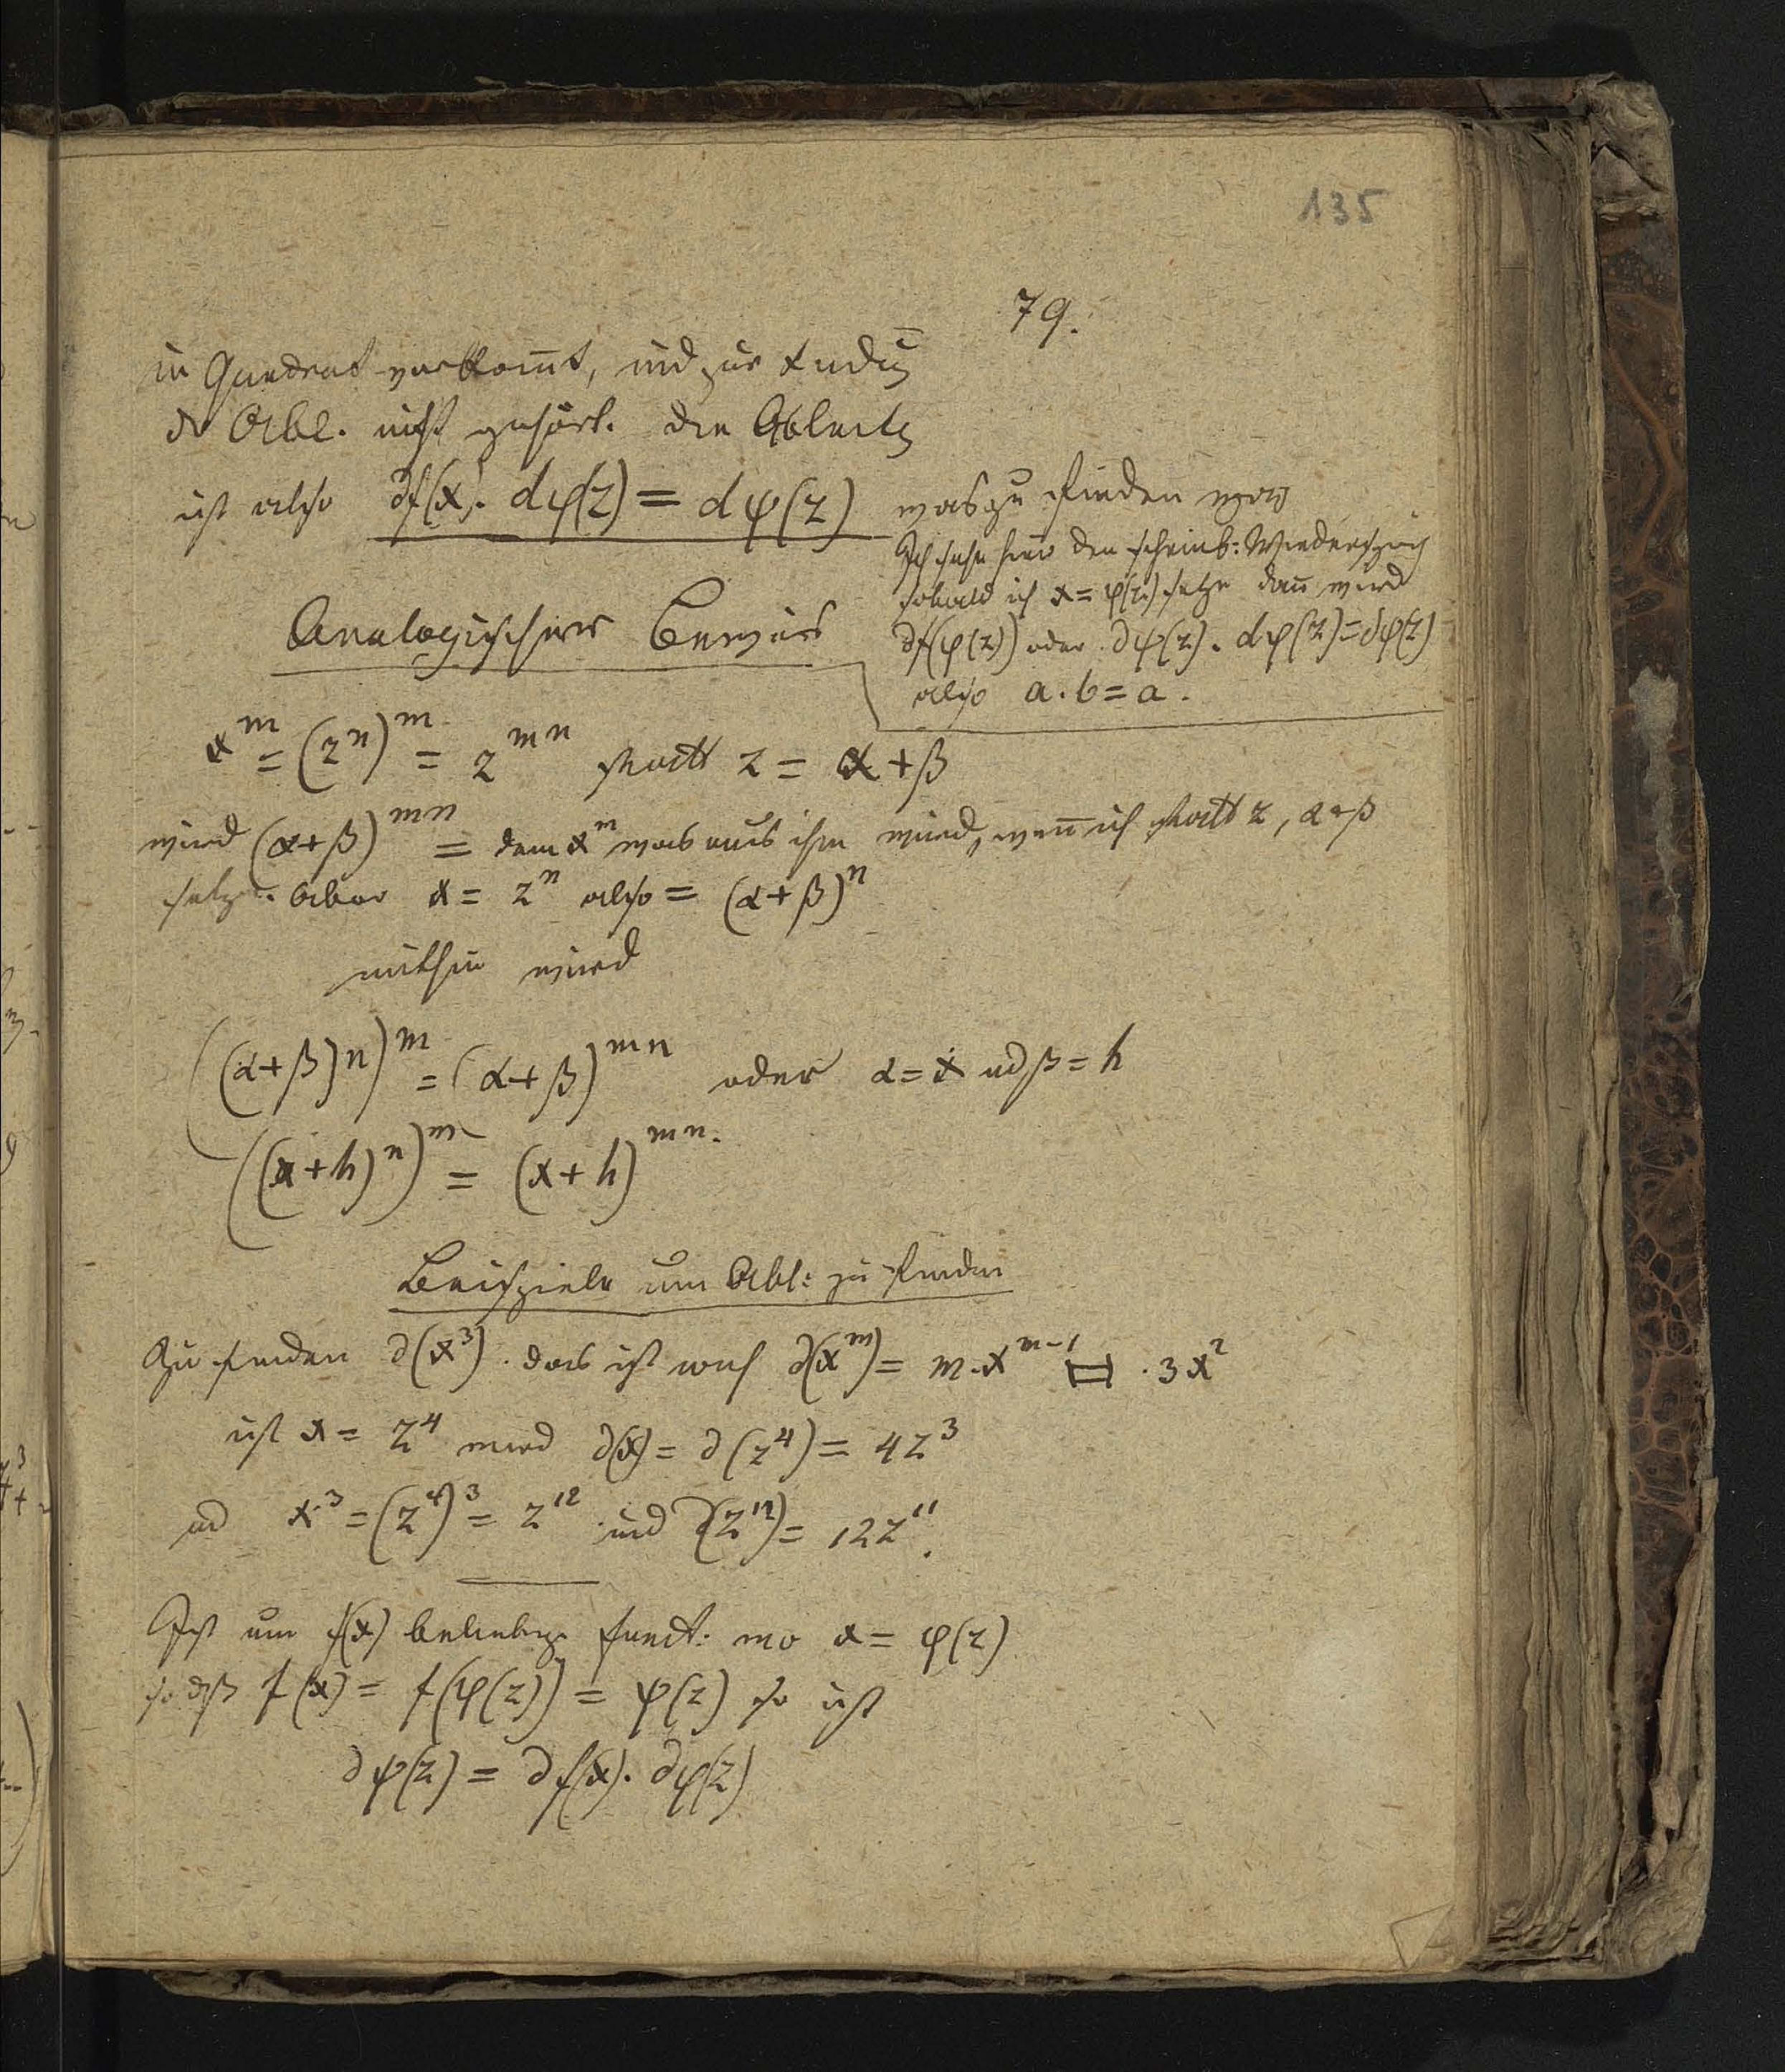 135
79.
in Quadrat vorkom̅t, und zur
d Abl. nicht gehört. die Ableitg
ist also ∂f(x). dφ(z) = dψ(z) was zu finden war
Ich sehe hier den scheinb: Wiederspruch
sobald ich x = φ(z) setze dan̅ wird
∂f(φ(z)) oder ∂ψ(z). dφ(z) = ∂ψ(z)
also a. b = a.
Analogischer Beweis
x^m = (z^n)^m = z^mn statt z = α + β
wird (α+β)^mn = dem x^m was aus ihm wird, wen̅ ich statt z, α+β
setze. Aber x = z^n also = (α+β)^n
mithin wird
((α+β)^n)^m = (α+β)^mn oder α = x ud β = h
((x+h)^n)^m = (x+h)^mn.
Beispiele um Abl: zu finden
Zu finden ∂(x^3). das ist nach ∂(x^m) = m.x^m-1 = .3x^2
ist x = z^4 wird ∂(x) = ∂(z^4) = 4z^3
ud x^3 = (z^4)^3 = z^12 und ∂(z^12) = 12z^11.
Ist nun f(x) beliebige funct: wo x = φ(z)
so dß f(x) = f(φ(z)) = ψ(z) so ist
∂ψ(z) = ∂f(x). ∂φ(z)